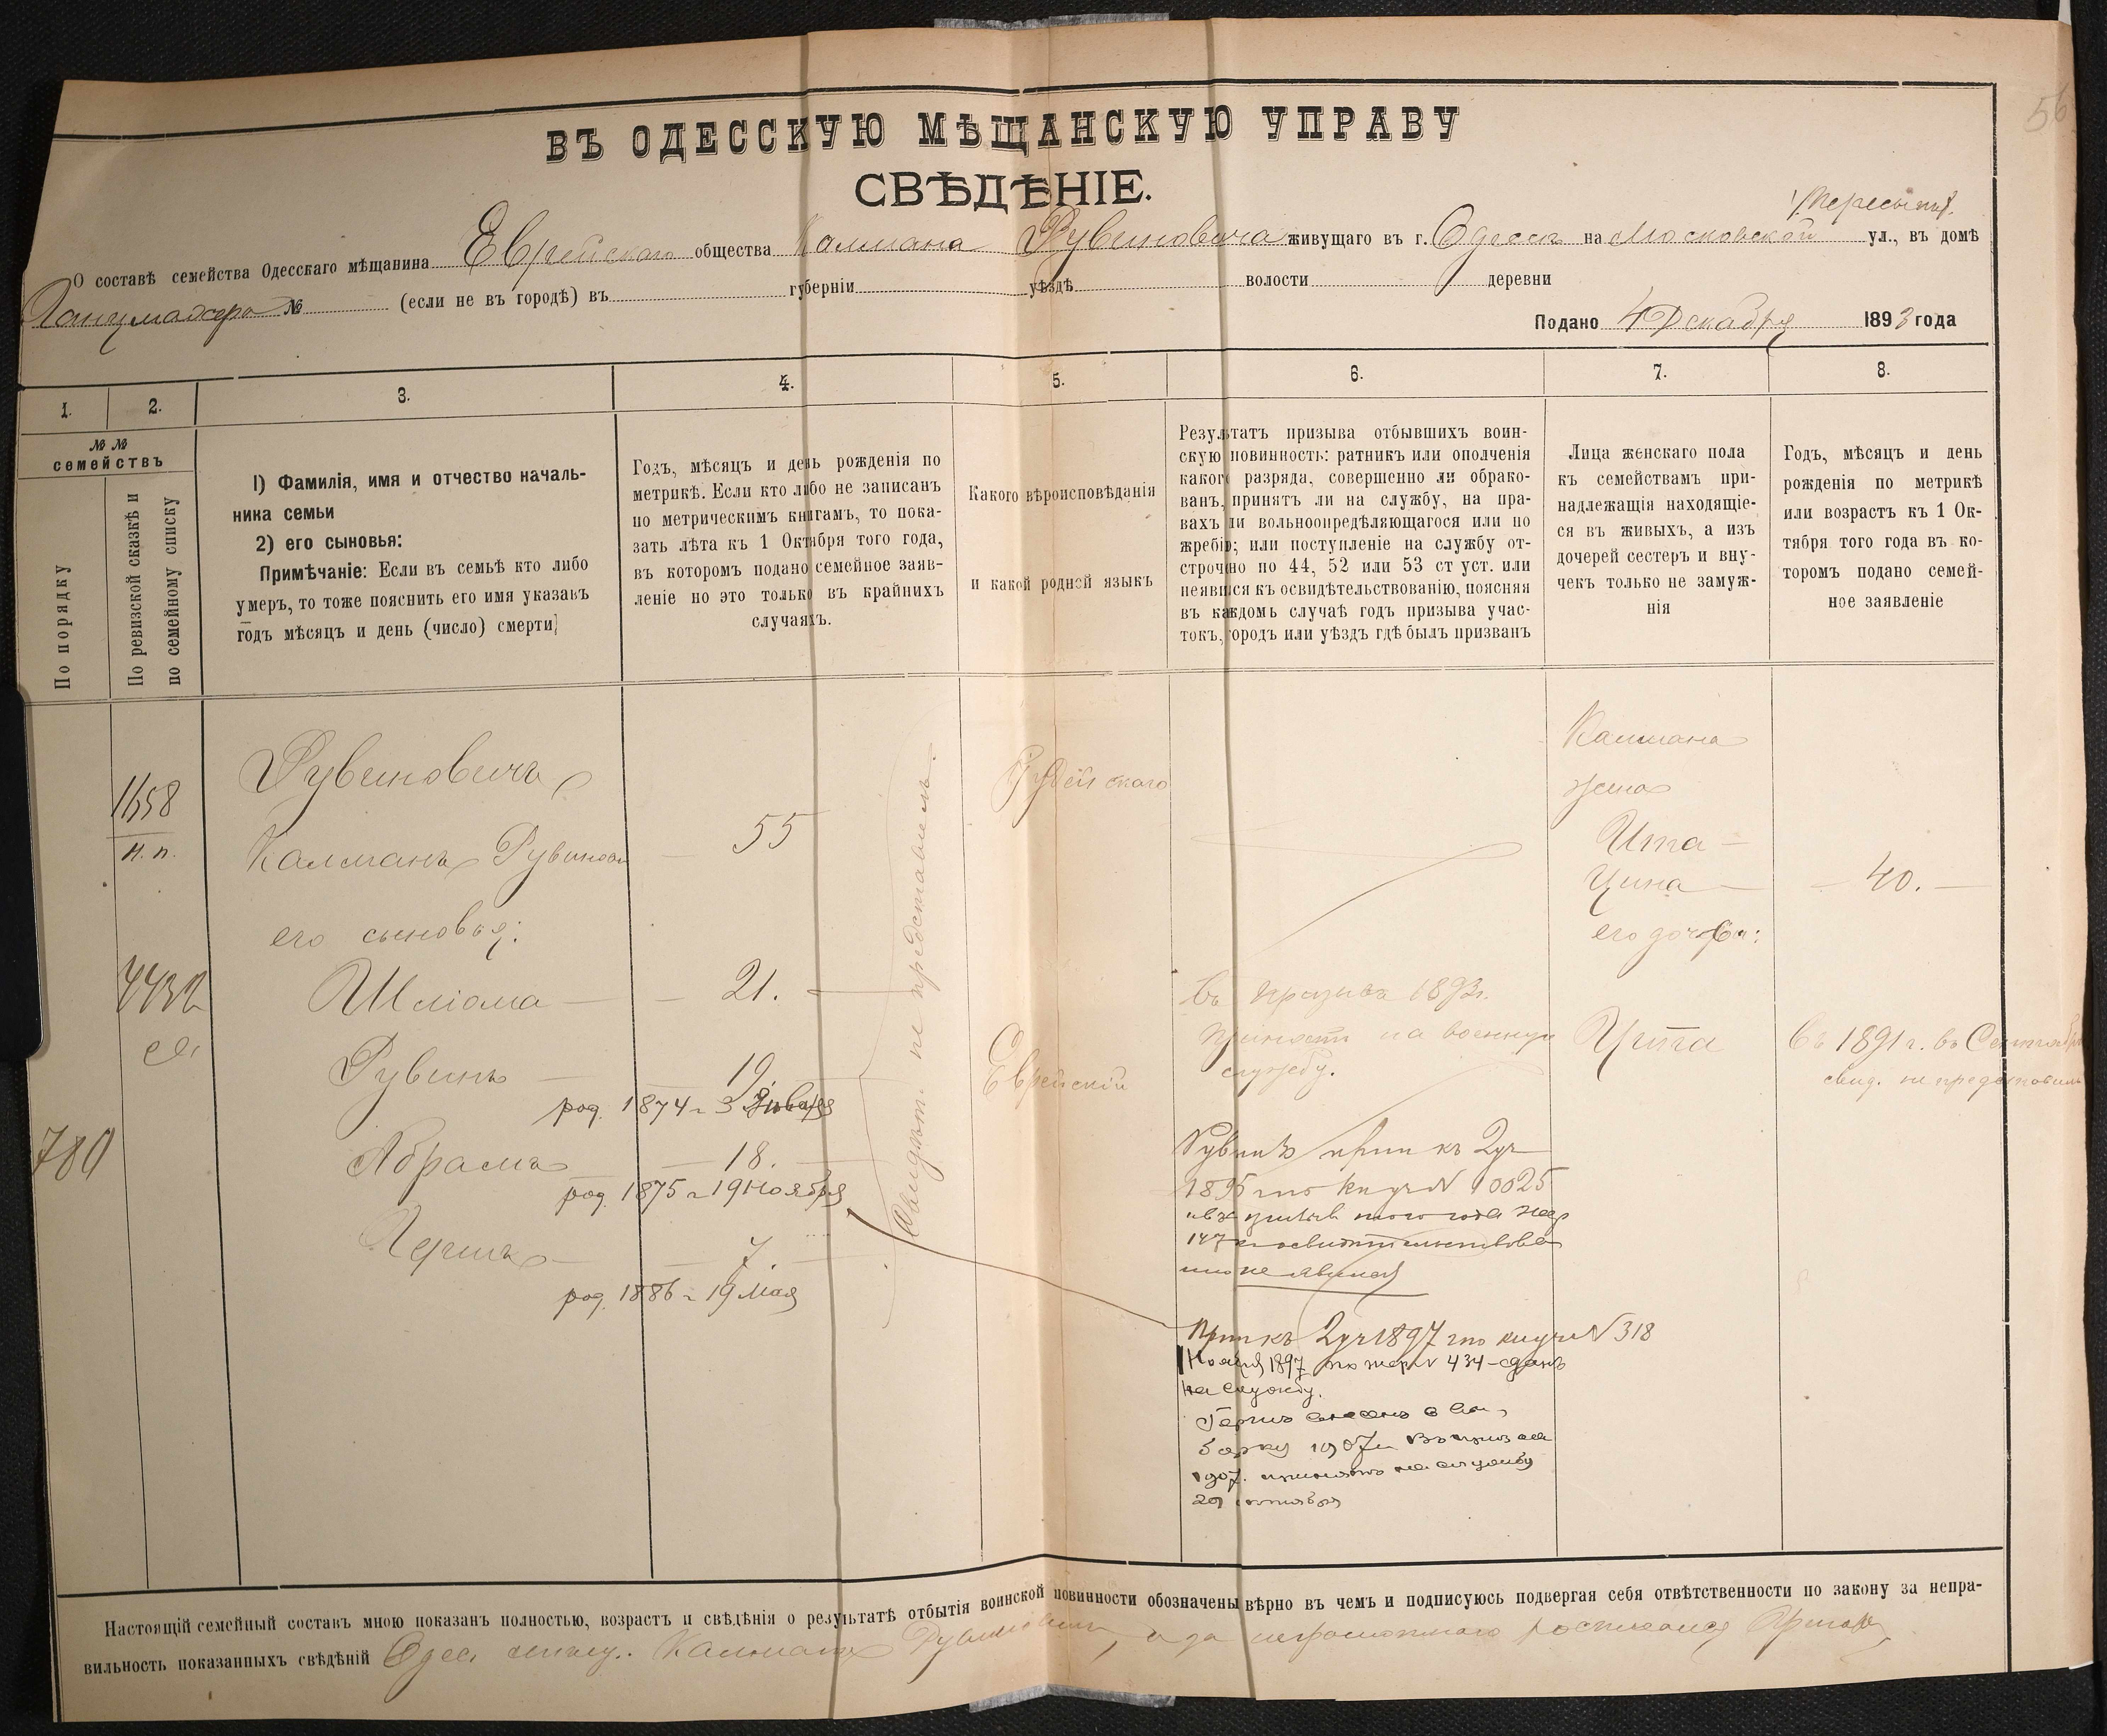 56
ВЪ ОДЕССКУЮ МѢЩАНСКУЮ УПРАВУ
СВѢДѢНІЕ.
О составѣ семейства Одесскаго мѣщанина Еврейскаго общества Калмана Рувиновича живущаго въ г. Одесса на Московской ул., въ домѣ
№ (если не въ городѣ) въ губерніи уѣздѣ волости деревни
Подано 4 Декабря 1893 года
1.
2.
3.
4.
5.
6.
7.
8.
№ №
семействъ
По порядку
По ревизской сказкѣ и
по семейному списку
1) Фамилія, имя и отчество началь-
ника семьи
2) его сыновья:
Примѣчаніе: Если въ семьѣ кто либо
умеръ, то тоже пояснить его имя указавъ
годъ мѣсяцъ и день (число) смерти
Годъ, мѣсяцъ и день рожденія по
метрикѣ. Если кто либо не записанъ
по метрическимъ книгамъ, то пока-
зать лѣта къ 1 Октября того года,
въ которомъ подано семейное заяв-
леніе но это только въ крайнихъ
случаяхъ.
Какого вѣроисповѣданія
и какой родной языкъ
Результатъ призыва отбывшихъ воин-
скую повинность: ратникъ или ополченія
какого разряда, совершенно ли обрако-
ванъ, принятъ ли на службу, на пра-
вахъ ли вольноопредѣляющагося или по
жребію; или поступленіе на службу от-
строчено по 44, 52 или 53 ст уст. или
неявился къ освидѣтельствованію, поясняя
въ каждомъ случаѣ годъ призыва учас-
токъ, городъ или уѣздъ гдѣ былъ призванъ
Лица женскаго пола
къ семействамъ при-
надлежащія находящіе-
ся въ живыхъ, а изъ
дочерей сестеръ и вну-
чекъ только не замуж-
нія
Годъ, мѣсяцъ и день
рожденія по метрикѣ
или возрастъ къ 1 Ок-
тября того года въ ко-
торомъ подано семей-
ное заявленіе
Рувиновичъ
Калманъ Рувинов
55
его сыновья:
Шліома — 21.
Рувинъ — 19.
род. 1874 г 3 Января
780
Абрамъ — 18.
род. 1875 г 19 Ноября
Гершъ — 7.
род. 1886 г 19 Мая
не представилъ.
Іудейскаго
Еврейскій
Въ призывъ 1893 г.
принятъ на военную
службу.
Рувинъ прип къ 2 уч
1895 г по кн уч № 10025
не явился
Прип къ 2 уч 1897 г по кн уч № 318
Ноября 1897 по жер № 434 - сданъ
на службу.
1907. принятъ на службу
Калмана
жена
Ита —
Цина — 40.
его дочери:
въ 1891 г. въ Сентябрѣ
свид. не представилъ
Настоящій семейный составъ мною показанъ полностью, возрастъ и свѣдѣнія о результатѣ отбытія воинской повинности обозначены вѣрно въ чемъ и подписуюсь подвергая себя отвѣтственности по закону за непра-
вильность показанныхъ свѣдѣній Одес. Калманъ Рувиновичъ, а за неграмотнаго росписался